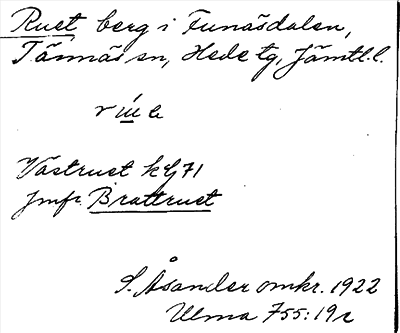 Ruet berg i Funäsdalen,
Tännäs sn, Hede tg, Jämtl. l.
Västruet kG71
Jmfr. Brattruet
S. Åsander omkr. 1922
Ulma 755:19